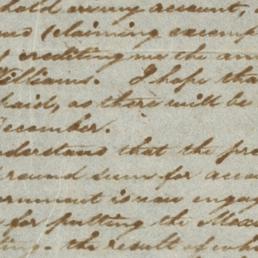 hold on my account,
(claiming exemp
crediting me the am
Williams. I hope tha
paid, as there will be
December.
understand that the pre
round sum for acco
ernment is now engag
for putting the Max
ting - the result of wh